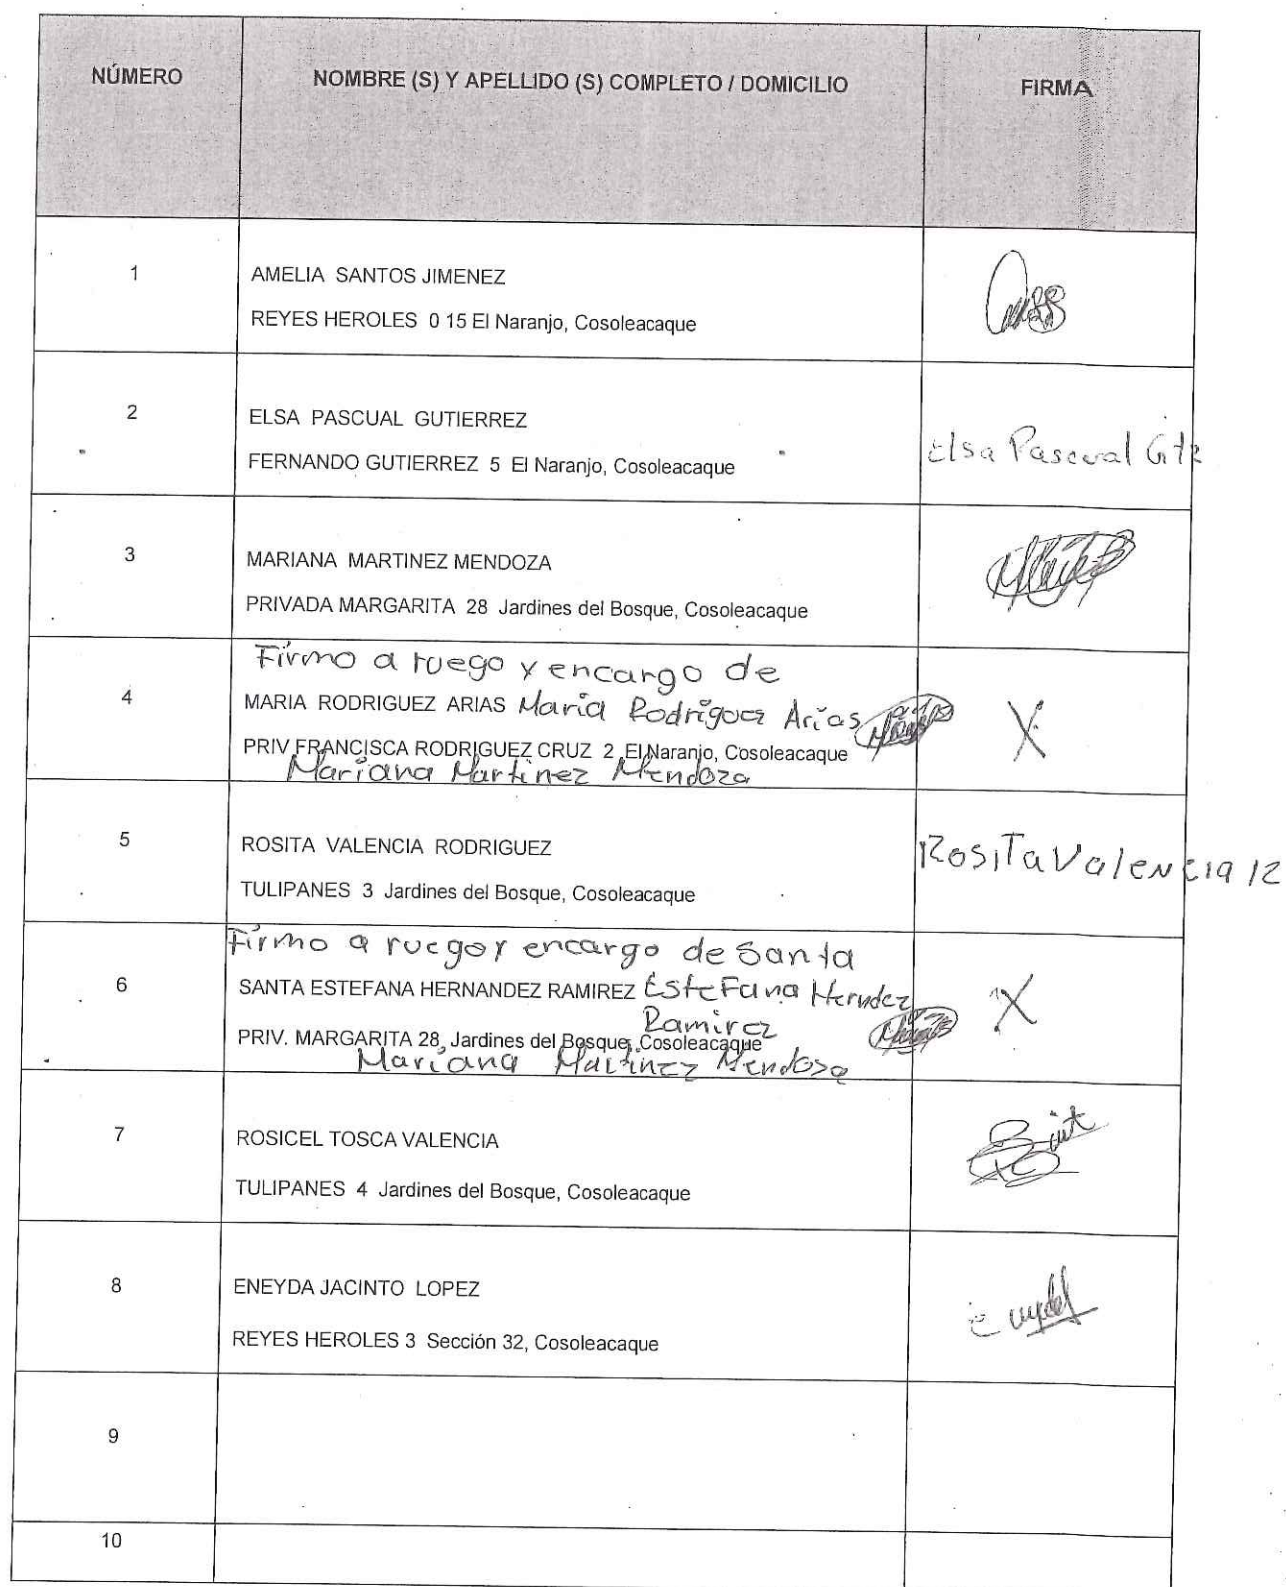 NÚMERO
NOMBRE (S) Y APELLIDO (S) COMPLETO / DOMICILIO
FIRMA
1
AMELIA SANTOS JIMENEZ
REYES HEROLES 0 15 El Naranjo, Cosoleacaque
2
ELSA PASCUAL GUTIERREZ
FERNANDO GUTIERREZ 5 El Naranjo, Cosoleacaque
Elsa Pascual Gtz
3
MARIANA MARTINEZ MENDOZA
PRIVADA MARGARITA 28 Jardines del Bosque, Cosoleacaque
4
Firmo a ruego y encargo de
MARIA RODRIGUEZ ARIAS Maria Rodriguez Arias
X
PRIV FRANCISCA RODRIGUEZ CRUZ 2 El Naranjo, Cosoleacaque
Mariana Martinez Mendoza
5
ROSITA VALENCIA RODRIGUEZ
TULIPANES 3 Jardines del Bosque, Cosoleacaque
Rosita Valencia R
6
Firmo a ruego y encargo de Santa
SANTA ESTEFANA HERNANDEZ RAMIREZ Estefana Herndez
Ramirez
X
PRIV. MARGARITA 28, Jardines del Bosque, Cosoleacaque
Mariana Martinez Mendoza
7
ROSICEL TOSCA VALENCIA
TULIPANES 4 Jardines del Bosque, Cosoleacaque
8
ENEYDA JACINTO LOPEZ
REYES HEROLES 3 Sección 32, Cosoleacaque
9
10